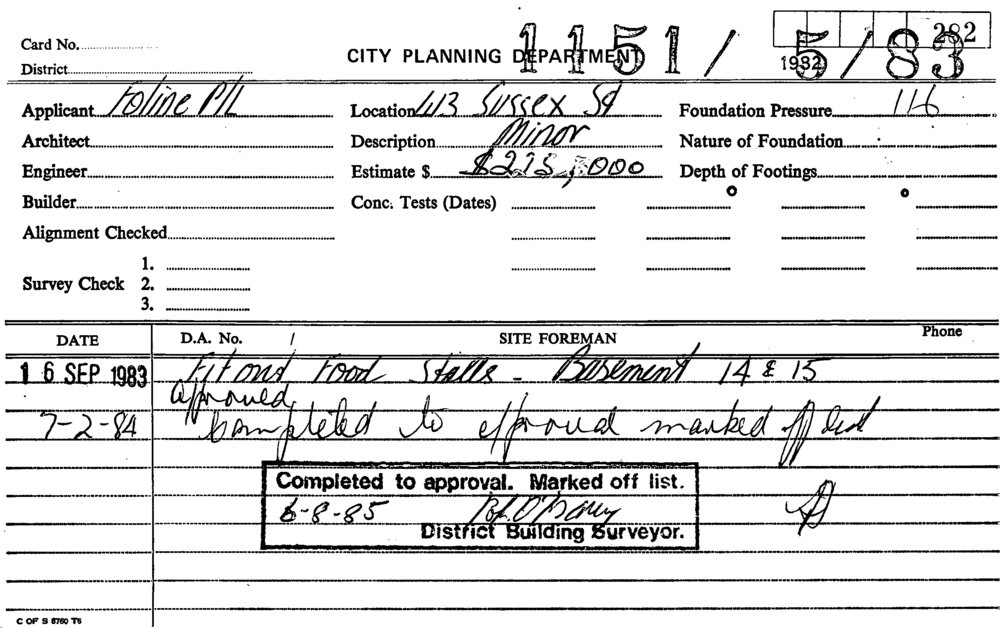 Card No.
282
CITY PLANNING DEPARTMENT
1151/5/83
1982
District
Applicant Foline P/L Location 413 Sussex St Foundation Pressure 116
Architect Description Minor Nature of Foundation
Engineer Estimate $ $275,000 Depth of Footings
Builder Conc. Tests (Dates)
Alignment Checked
1.
Survey Check 2.
3.
DATE D.A. No. SITE FOREMAN Phone
16 SEP 1983 Fit out Food Stalls - Basement 14 & 15
approved
7-2-84 completed to approval marked off list
Completed to approval. Marked off list.
6-8-85
District Building Surveyor.
C OF S 6760 T6